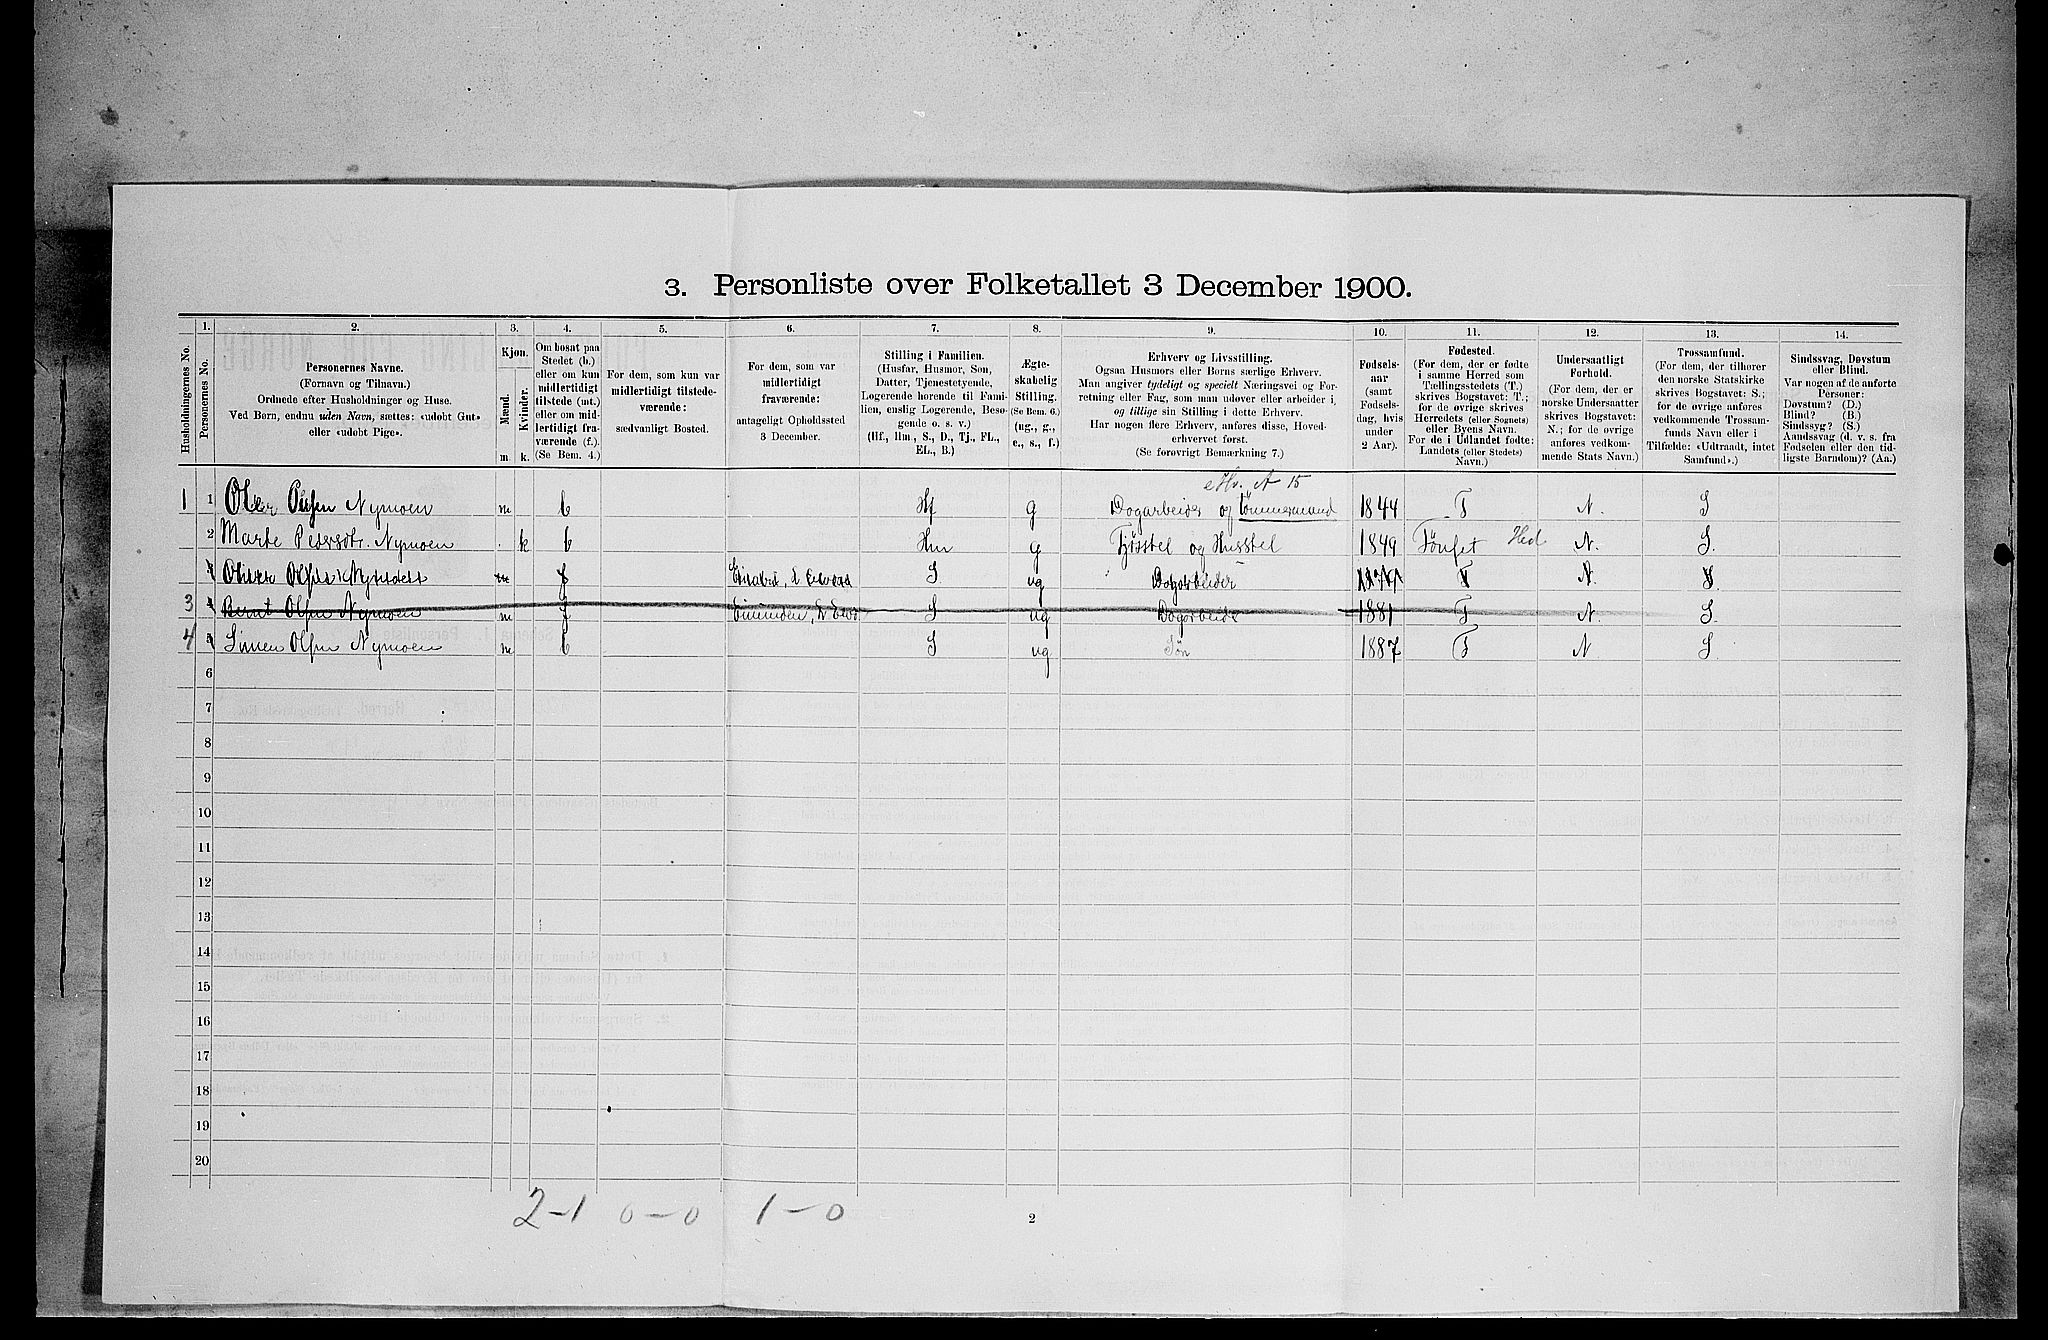 3. Personliste over Folketallet 3 December 1900.
Husholdningernes No.
1.
Personernes No.
2.
Personernes Navne.
(Fornavn og Tilnavn.)
Ordnede efter Husholdninger og Huse.
Ved Børn, endnu uden Navn, sættes: «udøbt Gut»
eller «udøbt Pige».
3.
Kjøn.
Mænd.
Kvinder.
m.
k.
4.
Om bosat paa
Stedet (b.)
eller om kun
midlertidigt
tilstede (mt.)
eller om mid-
lertidigt fra-
værende (f.).
(Se Bem. 4.)
5.
For dem, som kun var
midlertidigt tilstede-
værende:
sædvanligt Bosted.
6.
For dem, som var
midlertidigt
fraværende:
antageligt Opholdssted
3 December.
7.
Stilling i Familien.
(Husfar, Husmor, Søn,
Datter, Tjenestetyende,
Logerende hørende til Fami-
lien, enslig Logerende, Besø-
gende o. s. v.)
(Hf., Hm., S., D., Tj., FL.,
EL., B.)
8.
Ægte-
skabelig
Stilling.
(Se Bem. 6.)
(ug., g.,
e., s., f.)
9.
Erhverv og Livsstilling.
Ogsaa Husmors eller Børns særlige Erhverv.
Man angiver tydeligt og specielt Næringsvei og For-
retning eller Fag, som man udøver eller arbeider i,
og tillige sin Stilling i dette Erhverv.
Har nogen flere Erhverv, anføres disse, Hoved-
erhvervet først.
(Se forøvrigt Bemærkning 7.)
10.
Fødsels-
aar
(samt
Fødsels-
dag, hvis
under
2 Aar).
11.
Fødested.
(For dem, der er fødte
i samme Herred som
Tællingsstedets (T.)
skrives Bogstavet: T.;
for de øvrige skrives
Herredets (eller Sognets)
eller Byens Navn.
For de i Udlandet fødte:
Landets (eller Stedets)
Navn.)
12.
Undersaatligt
Forhold.
(For dem, der er
norske Undersaatter
skrives Bogstavet:
N.; for de øvrige
anføres vedkom-
mende Stats Navn.)
13.
Trossamfund.
(For dem, der tilhører
den norske Statskirke
skrives Bogstavet: S.;
for de øvrige anføres
vedkommende Trossam-
funds Navn eller i
Tilfælde: «Udtraadt, intet
Samfund».)
14.
Sindssvag, Døvstum
eller Blind.
Var nogen af de anførte
Personer:
Døvstum? (D.)
Blind? (B.)
Sindssyg? (S.)
Aandssvag (d. v. s. fra
Fødselen eller den tid-
ligste Barndom)? (Aa.)
A 15
1 1 Olsen Nymoen m b Hf g Dagarbeider og tømmermand 1844 T N. S
2 Marte Pedersdt. Nymoen k b Hm g Fjøsstel og Husstel 1849 Tønset Hed N. S.
Nymoen f S ug Dagarbeider T N. S
3 4 Bernt Olsen Nymoen m f S ug Dagarbeider 1881 T N. S.
4 5 Simen Olsen Nymoen m b S ug Søn 1887 T N S.
6
7
8
9
10
11
12
13
14
15
16
17
18
19
20
2-1 0-0 1-0
2